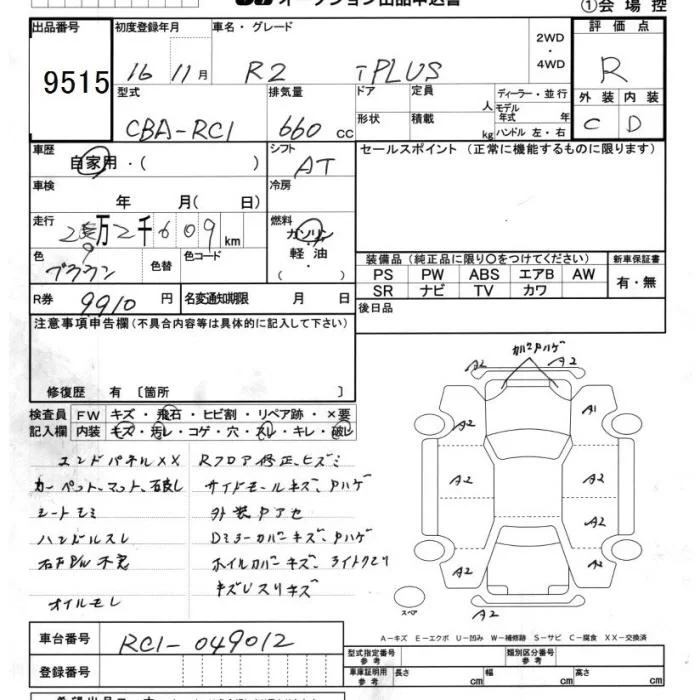 オークション出品申込書
①会場控
出品番号
9515
初度登録年月
16 11月
車名・グレード
R2 iPLUS
2WD
・
4WD
評価点
R
型式
CBA-RC1
排気量
660 cc
ドア
定員
人
ディーラー・並行
モデル年式 年
形状
積載
kg
ハンドル 左・右
外装
C
内装
D
車歴
自家用・( )
シフト
AT
セールスポイント (正常に機能するものに限ります)
車検
年 月( 日)
冷房
走行
万2千609km
燃料
ガソリン
軽油
( ・ )
色
ブラウン
色替
色コード
装備品 (純正品に限り○をつけてください)
新車保証書
PS PW ABS エアB AW
有・無
SR ナビ TV カワ
R券
9910円
名変通知期限 月 日
後日品
注意事項申告欄 (不具合内容等は具体的に記入して下さい)
修復歴 有 〔箇所 〕
検査員
記入欄
FW キズ・飛石・ヒビ割・リペア跡・×要
内装 キズ・汚レ・コゲ・穴・スレ・キレ・破レ
エンドパネルXX
カーペット、マット、石良し
シートシミ
ハンドルスレ
右PW不完
オイルモレ
Rフロア修正、ヒズミ
サイドモールキズ、Pハゲ
外装Pアセ
Dミラーカバーキズ、Pハゲ
ホイルカバーキズ、ライトクモリ
キズUスリキズ
カバーPハゲ
A2 A2
A2 A1
A2 A2
A2
A2 A2
A2
スペア
A－キズ E－エクボ U－凹み W－補修跡 S－サビ C－腐食 XX－交換済
車台番号
RC1-049012
登録番号
型式指定番号
参考
類別区分番号
参考
車庫証明用
参考
長さ cm
幅 cm
高さ cm